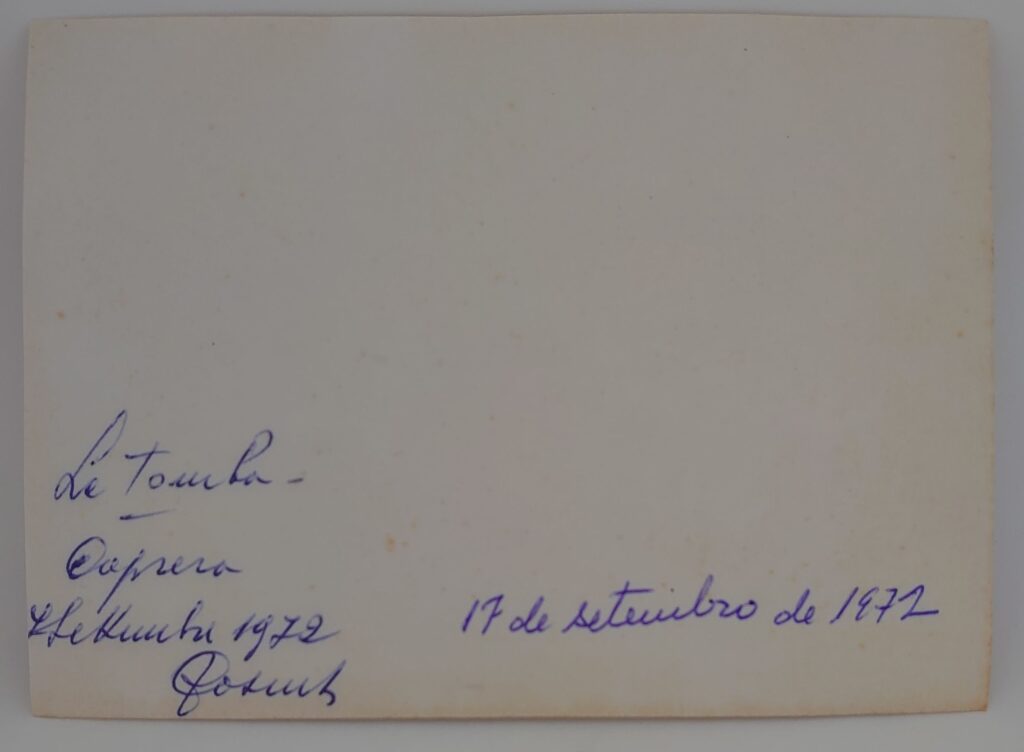 La Tomba -
Caprera
Settembre 1972
17 de setembro de 1972